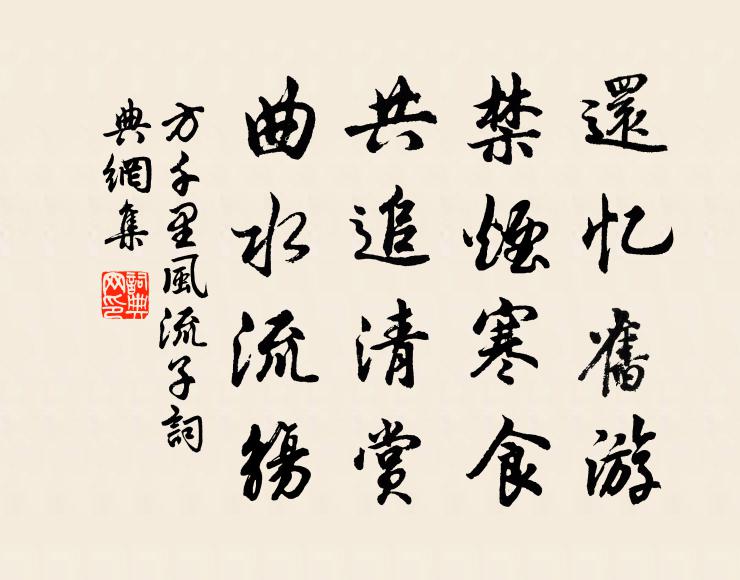 還忆舊游
禁煙寒食
共追清賞
曲水流觴
方千里風流子詞
典網集
詞典
网印